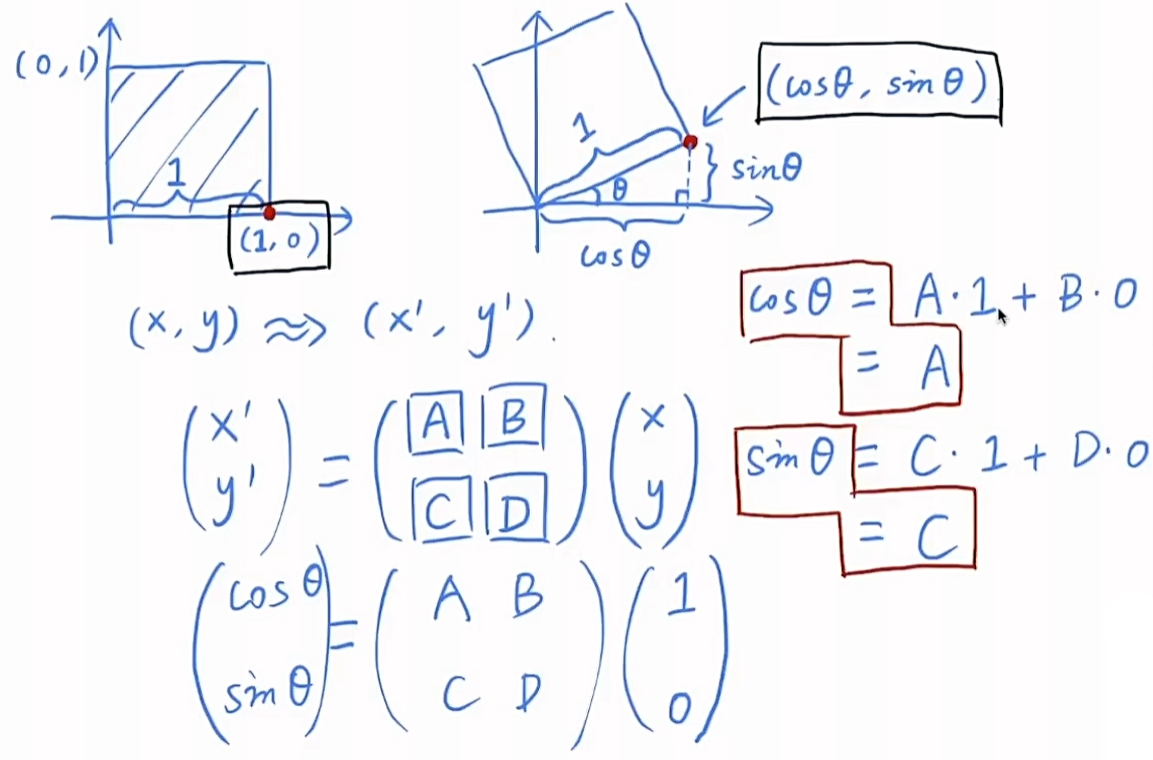 (0,1)
1
(1,0)
1
θ
(cosθ, sinθ)
sinθ
cosθ
(x, y) ⇝ (x', y').
(x' y') = (A B C D) (x y)
(cosθ sinθ) = (A B C D) (1 0)
cosθ = A·1 + B·0
= A
sinθ = C·1 + D·0
= C